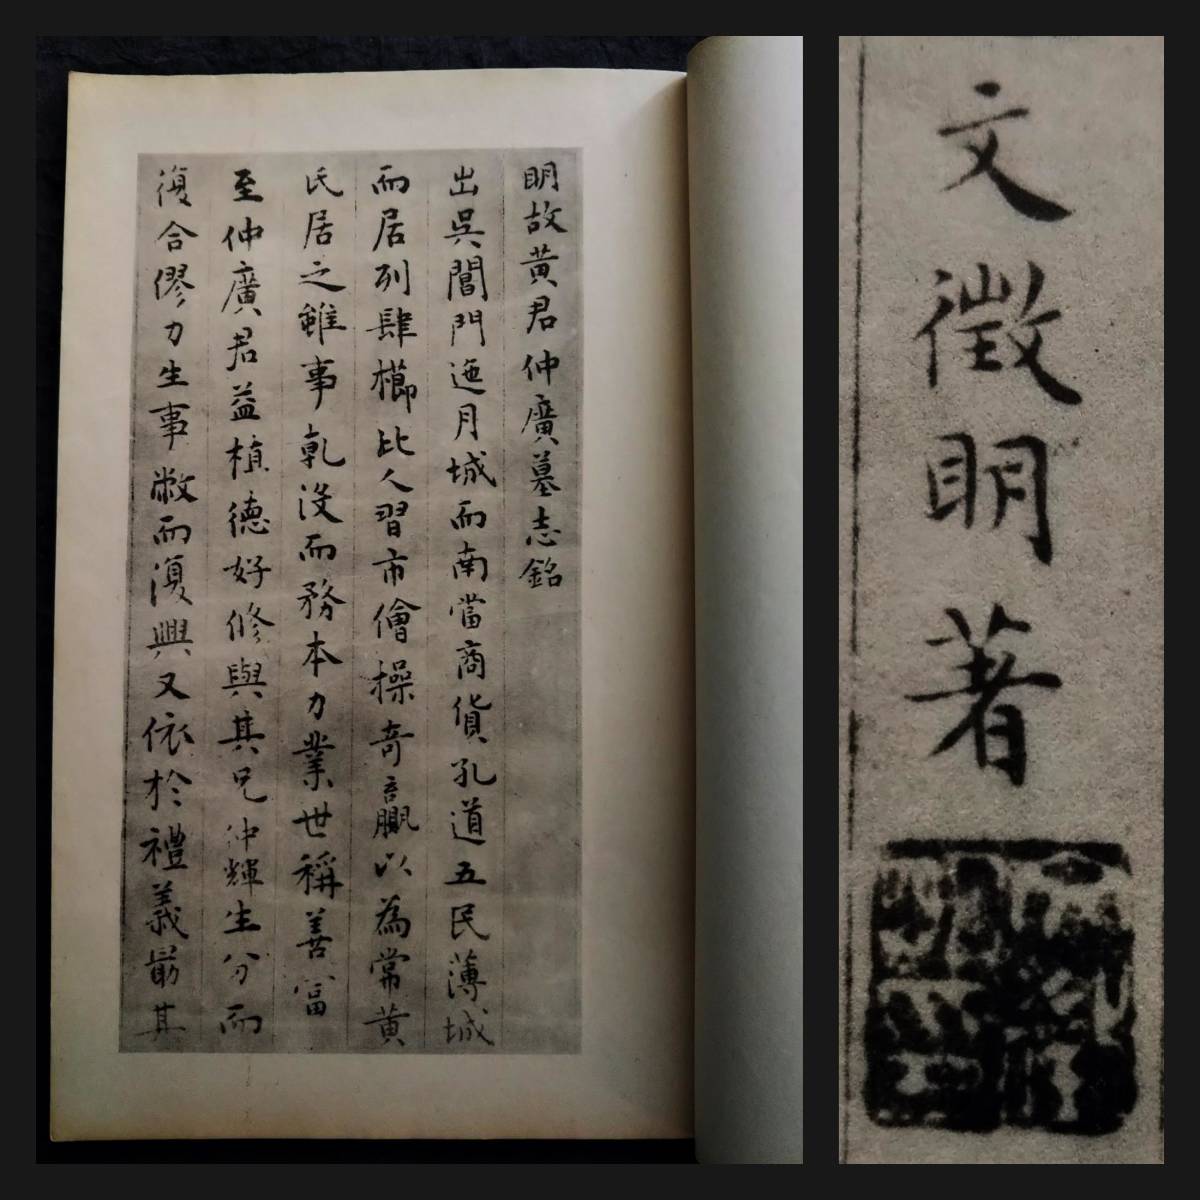 明故黄君仲廣墓志銘
出吳閶門迤月城而南當商貨孔道五民薄城
而居列肆櫛比人習市儈操奇贏以為常黄
氏居之雖事乾没而務本力業世稱善富
至仲廣君益植德好修與其兄仲輝生分而
復合僇力生事敝而復興又依於禮義最其
文徵明著